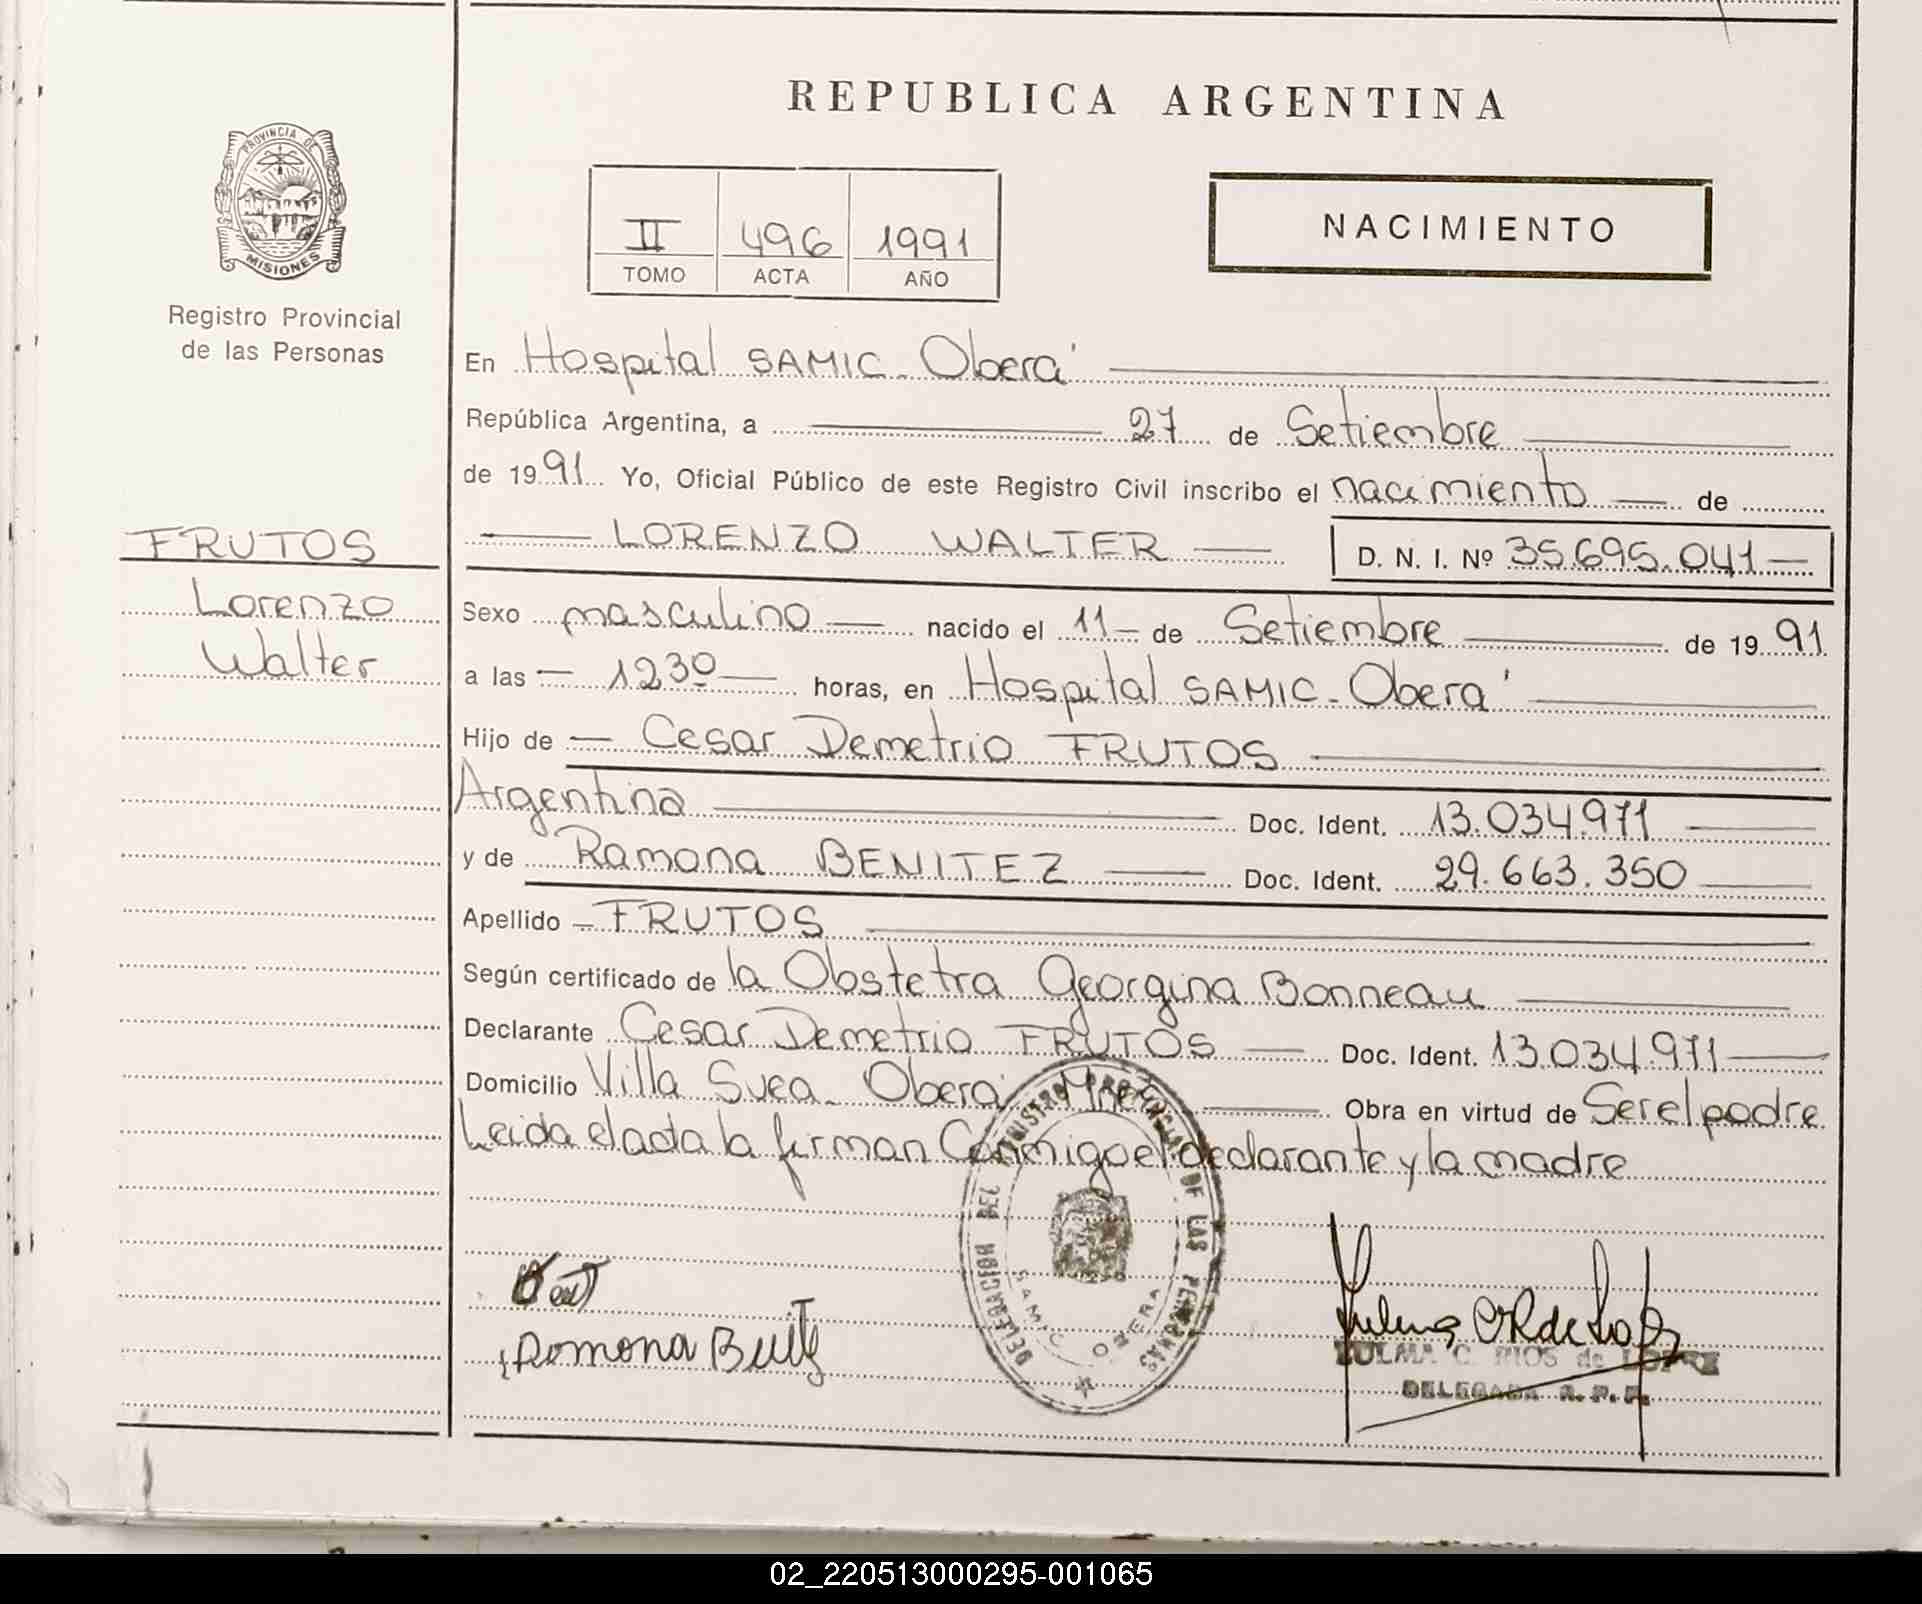 REPUBLICA ARGENTINA
PROVINCIA DE
MISIONES
Registro Provincial
de las Personas
II 496 1991
TOMO ACTA AÑO
NACIMIENTO
En Hospital SAMIC - Oberá
República Argentina, a 27 de Setiembre
de 1991 Yo, Oficial Público de este Registro Civil inscribo el nacimiento de
LORENZO WALTER D. N. I. Nº 35.695.041
FRUTOS
Lorenzo
Walter
Sexo masculino nacido el 11 de Setiembre de 1991
a las 12 30 horas, en Hospital SAMIC - Oberá
Hijo de Cesar Demetrio FRUTOS
Argentina Doc. Ident. 13.034.971
y de Ramona BENITEZ Doc. Ident. 29.663.350
Apellido FRUTOS
Según certificado de la Obstetra Georgina Bonneau
Declarante Cesar Demetrio FRUTOS Doc. Ident. 13.034.971
Domicilio Villa Svea - Oberá Mnes Obra en virtud de Ser el padre
Leida el acta la firman Conmigo el declarante y la madre
REGISTRO PROVINCIAL DE LAS PERSONAS
DELEGACION
SAMIC OBERA
Ramona
ZULMA C. RIOS de LOPEZ
DELEGADA R.P.P.
02_220513000295-001065